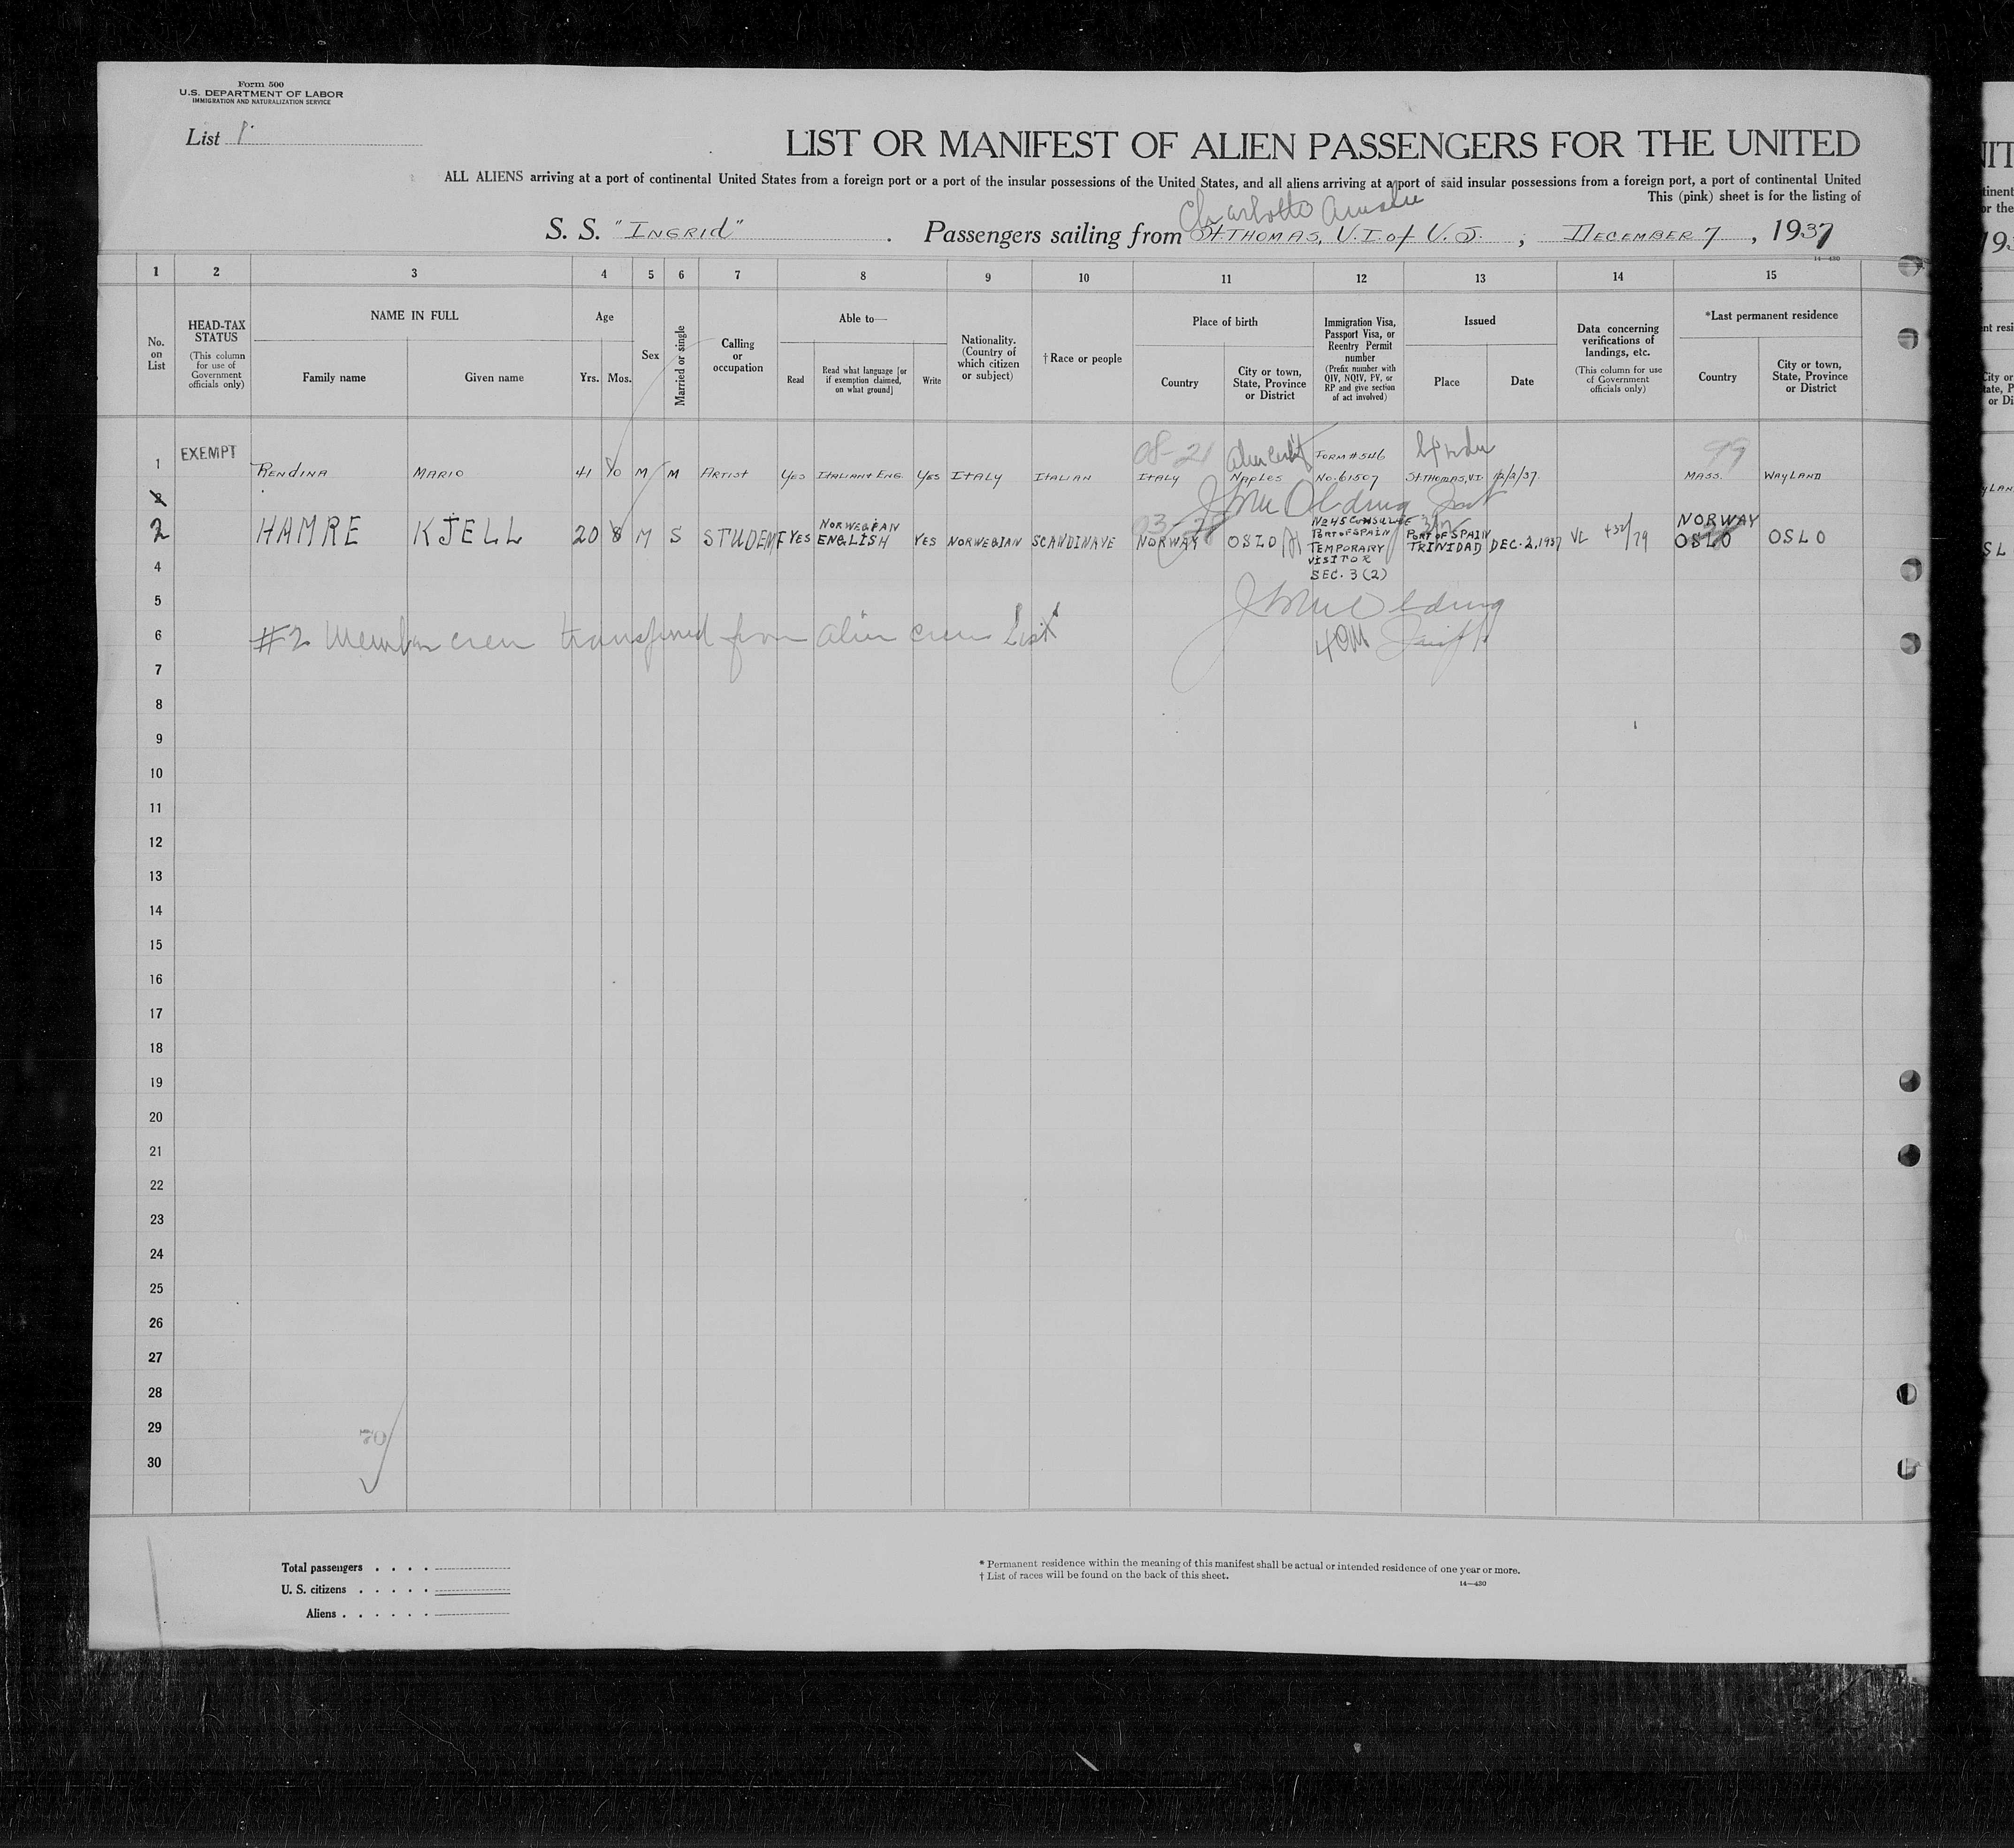 Form 500
U.S. DEPARTMENT OF LABOR
IMMIGRATION AND NATURALIZATION SERVICE
List 1
LIST OR MANIFEST OF ALIEN PASSENGERS FOR THE UNITED
ALL ALIENS arriving at a port of continental United States from a foreign port or a port of the insular possessions of the United States, and all aliens arriving at a port of said insular possessions from a foreign port, a port of continental United
This (pink) sheet is for the listing of
Charlotte Amalie
S. S. "INGRID" . Passengers sailing from St. THOMAS, V.I. of U.S. ; DECEMBER 7 , 1937
14—430
1 2 3 4 5 6 7 8 9 10 11 12 13 14 15
No. on List
HEAD-TAX STATUS (This column for use of Government officials only)
NAME IN FULL
Family name
Given name
Age
Yrs. Mos.
Sex
Married or single
Calling or occupation
Able to—
Read
Read what language [or if exemption claimed, on what ground]
Write
Nationality. (Country of which citizen or subject)
† Race or people
Place of birth
Country
City or town, State, Province or District
Immigration Visa, Passport Visa, or Reentry Permit number (Prefix number with QIV, NQIV, PV, or RP and give section of act involved)
Issued
Place
Date
Data concerning verifications of landings, etc. (This column for use of Government officials only)
*Last permanent residence
Country
City or town, State, Province or District
08-21 99
1 EXEMPT RENDINA MARIO 41 10 M M ARTIST YES ITALIAN & ENG. YES ITALY ITALIAN ITALY Naples FORM # 546 No. 61507 St. THOMAS, V.I. 12/2/37. MASS. WAYLAND
2
2 HAMRE KJELL 20 8 M S STUDENT YES NORWEGIAN ENGLISH YES NORWEGIAN SCANDINAVE NORWAY OSLO No 45 CONSULATE PORT OF SPAIN TEMPORARY VISITOR SEC. 3 (2) PORT OF SPAIN TRINIDAD DEC. 2, 1937 NORWAY OSLO OSLO
4
5
6 #2 Member crew transferred from alien crew List
7
8
9
10
11
12
13
14
15
16
17
18
19
20
21
22
23
24
25
26
27
28
29
30
Total passengers . . . .
U. S. citizens . . . . .
Aliens . . . . . .
* Permanent residence within the meaning of this manifest shall be actual or intended residence of one year or more.
† List of races will be found on the back of this sheet.
14—430